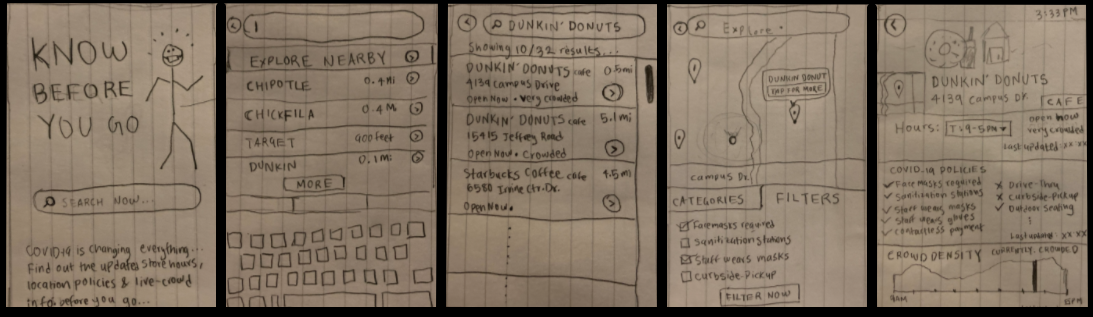 KNOW
BEFORE
YOU GO
SEARCH NOW...
COVID19 is changing everything...
Find out the updated store hours,
location policies & live-crowd
info before you go...
EXPLORE NEARBY
CHIPOTLE 0.4Mi
CHICKFILA 0.4M
TARGET 900feet
DUNKIN 0.1mi
MORE
DUNKIN' DONUTS
Showing 10/32 results...
DUNKIN' DONUTS cafe 0.5mi
4139 Campus Drive
Open Now • very crowded
DUNKIN' DONUTS cafe 5.1mi
15415 Jeffrey Road
Open Now • Crowded
Starbucks Coffee cafe 1.5mi
6580 Irvine Ctr. Dr.
Open Now •
Explore
DUNKIN DONUT
TAP FOR MORE
campus Dr.
CATEGORIES FILTERS
Facemasks required
Sanitization stations
Staff wears masks
Curbside-Pickup
FILTER NOW
3:33PM
DUNKIN' DONUTS
4139 campus Dr.
CAFE
Hours: T: 9-5pm
open now
very crowded
Last updated: xx xx
COVID.19 POLICIES
Face masks required
Sanitization stations
Staff wears masks
Staff wears gloves
Contactless payment
Drive-Thru
Curbside-Pickup
Outdoor Seating
Last updated: xx xx
CROWD DENSITY CURRENTLY: CROWDED
9AM